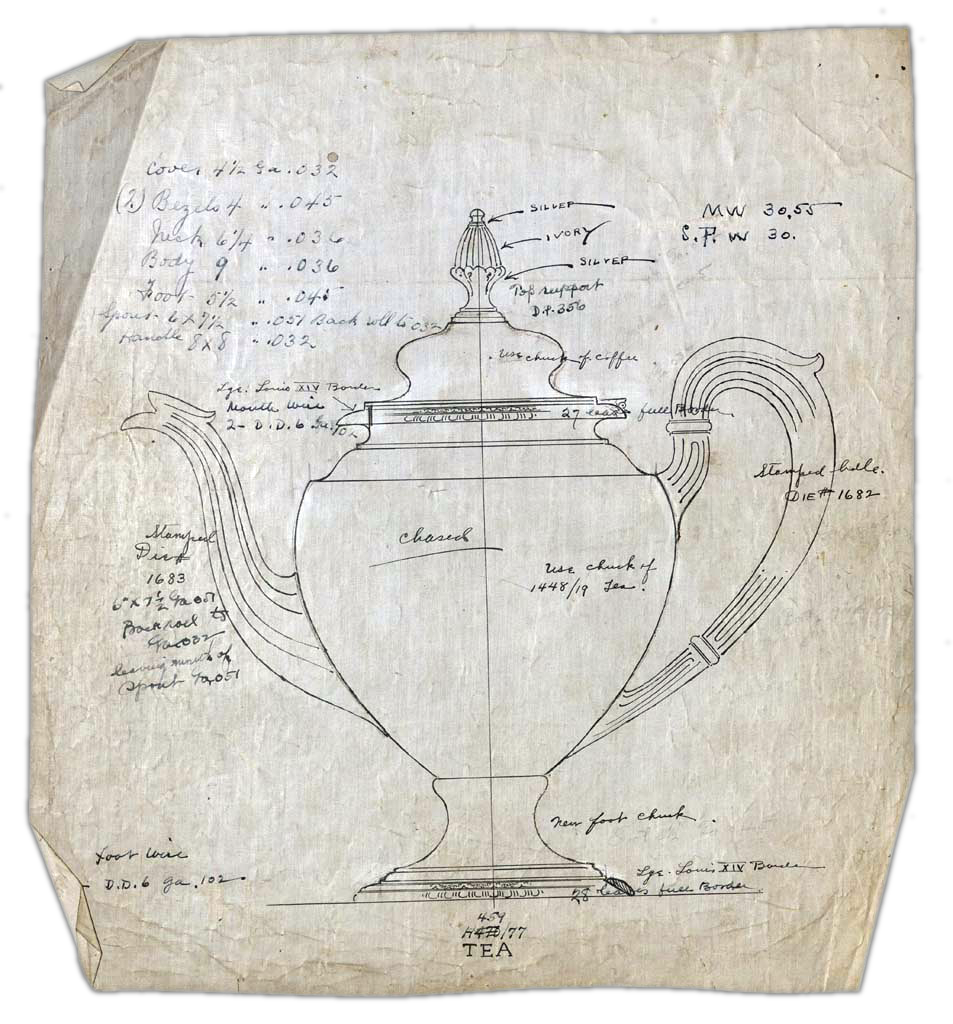 Cover 4½ Ga .032
(2) Bezels 4 " .045
Neck 6¼ " .036
Body 9 " .036
Foot 5½ " .045
Spout 6 x 7½ " .051 Back roll to .032
Handle 8 x 8 " .032
SILVER
IVORY
SILVER
Top support
D.P. 356
MW 30.55
S.P. W 30.
Use chuck of coffee
Lge. Louis XIV Border
Mouth wire
2 - D.D. 6 Ga. 102
27 leaves full Border
Stamped hdle.
DIE # 1682
chased
Use chuck of
1448/19 Tea.
Stamped
Die #
1683
6" x 7½ Ga 051
Back roll to
Ga 032
leaving mouth of
Spout Ga 051
new foot chuck.
Foot wire
D.D. 6 ga. 102.
Lge. Louis XIV Border
28 leaves full Border.
459
/77
TEA